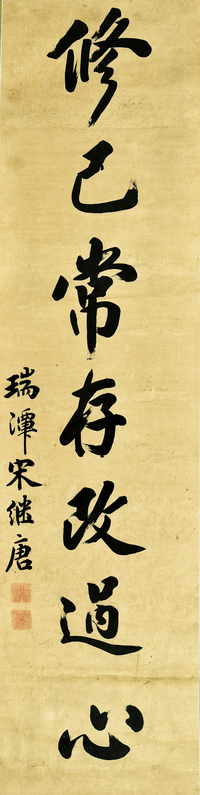 修己常存改過心
瑞潭宋继唐